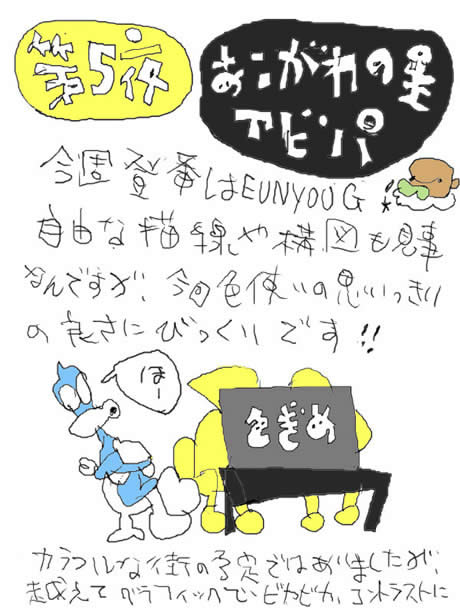 第5作
あこがれの星
アビンパ
今週登番はEUNYOUG
自由な描線や構図も見事
なんですが、今回色使いの思いっきり
の良さにびっくりです!!
ほー
色ぎめ
カラフルな街の予定ではありましたが、
越えてグラフィックで、ピカピカ、コントラストに